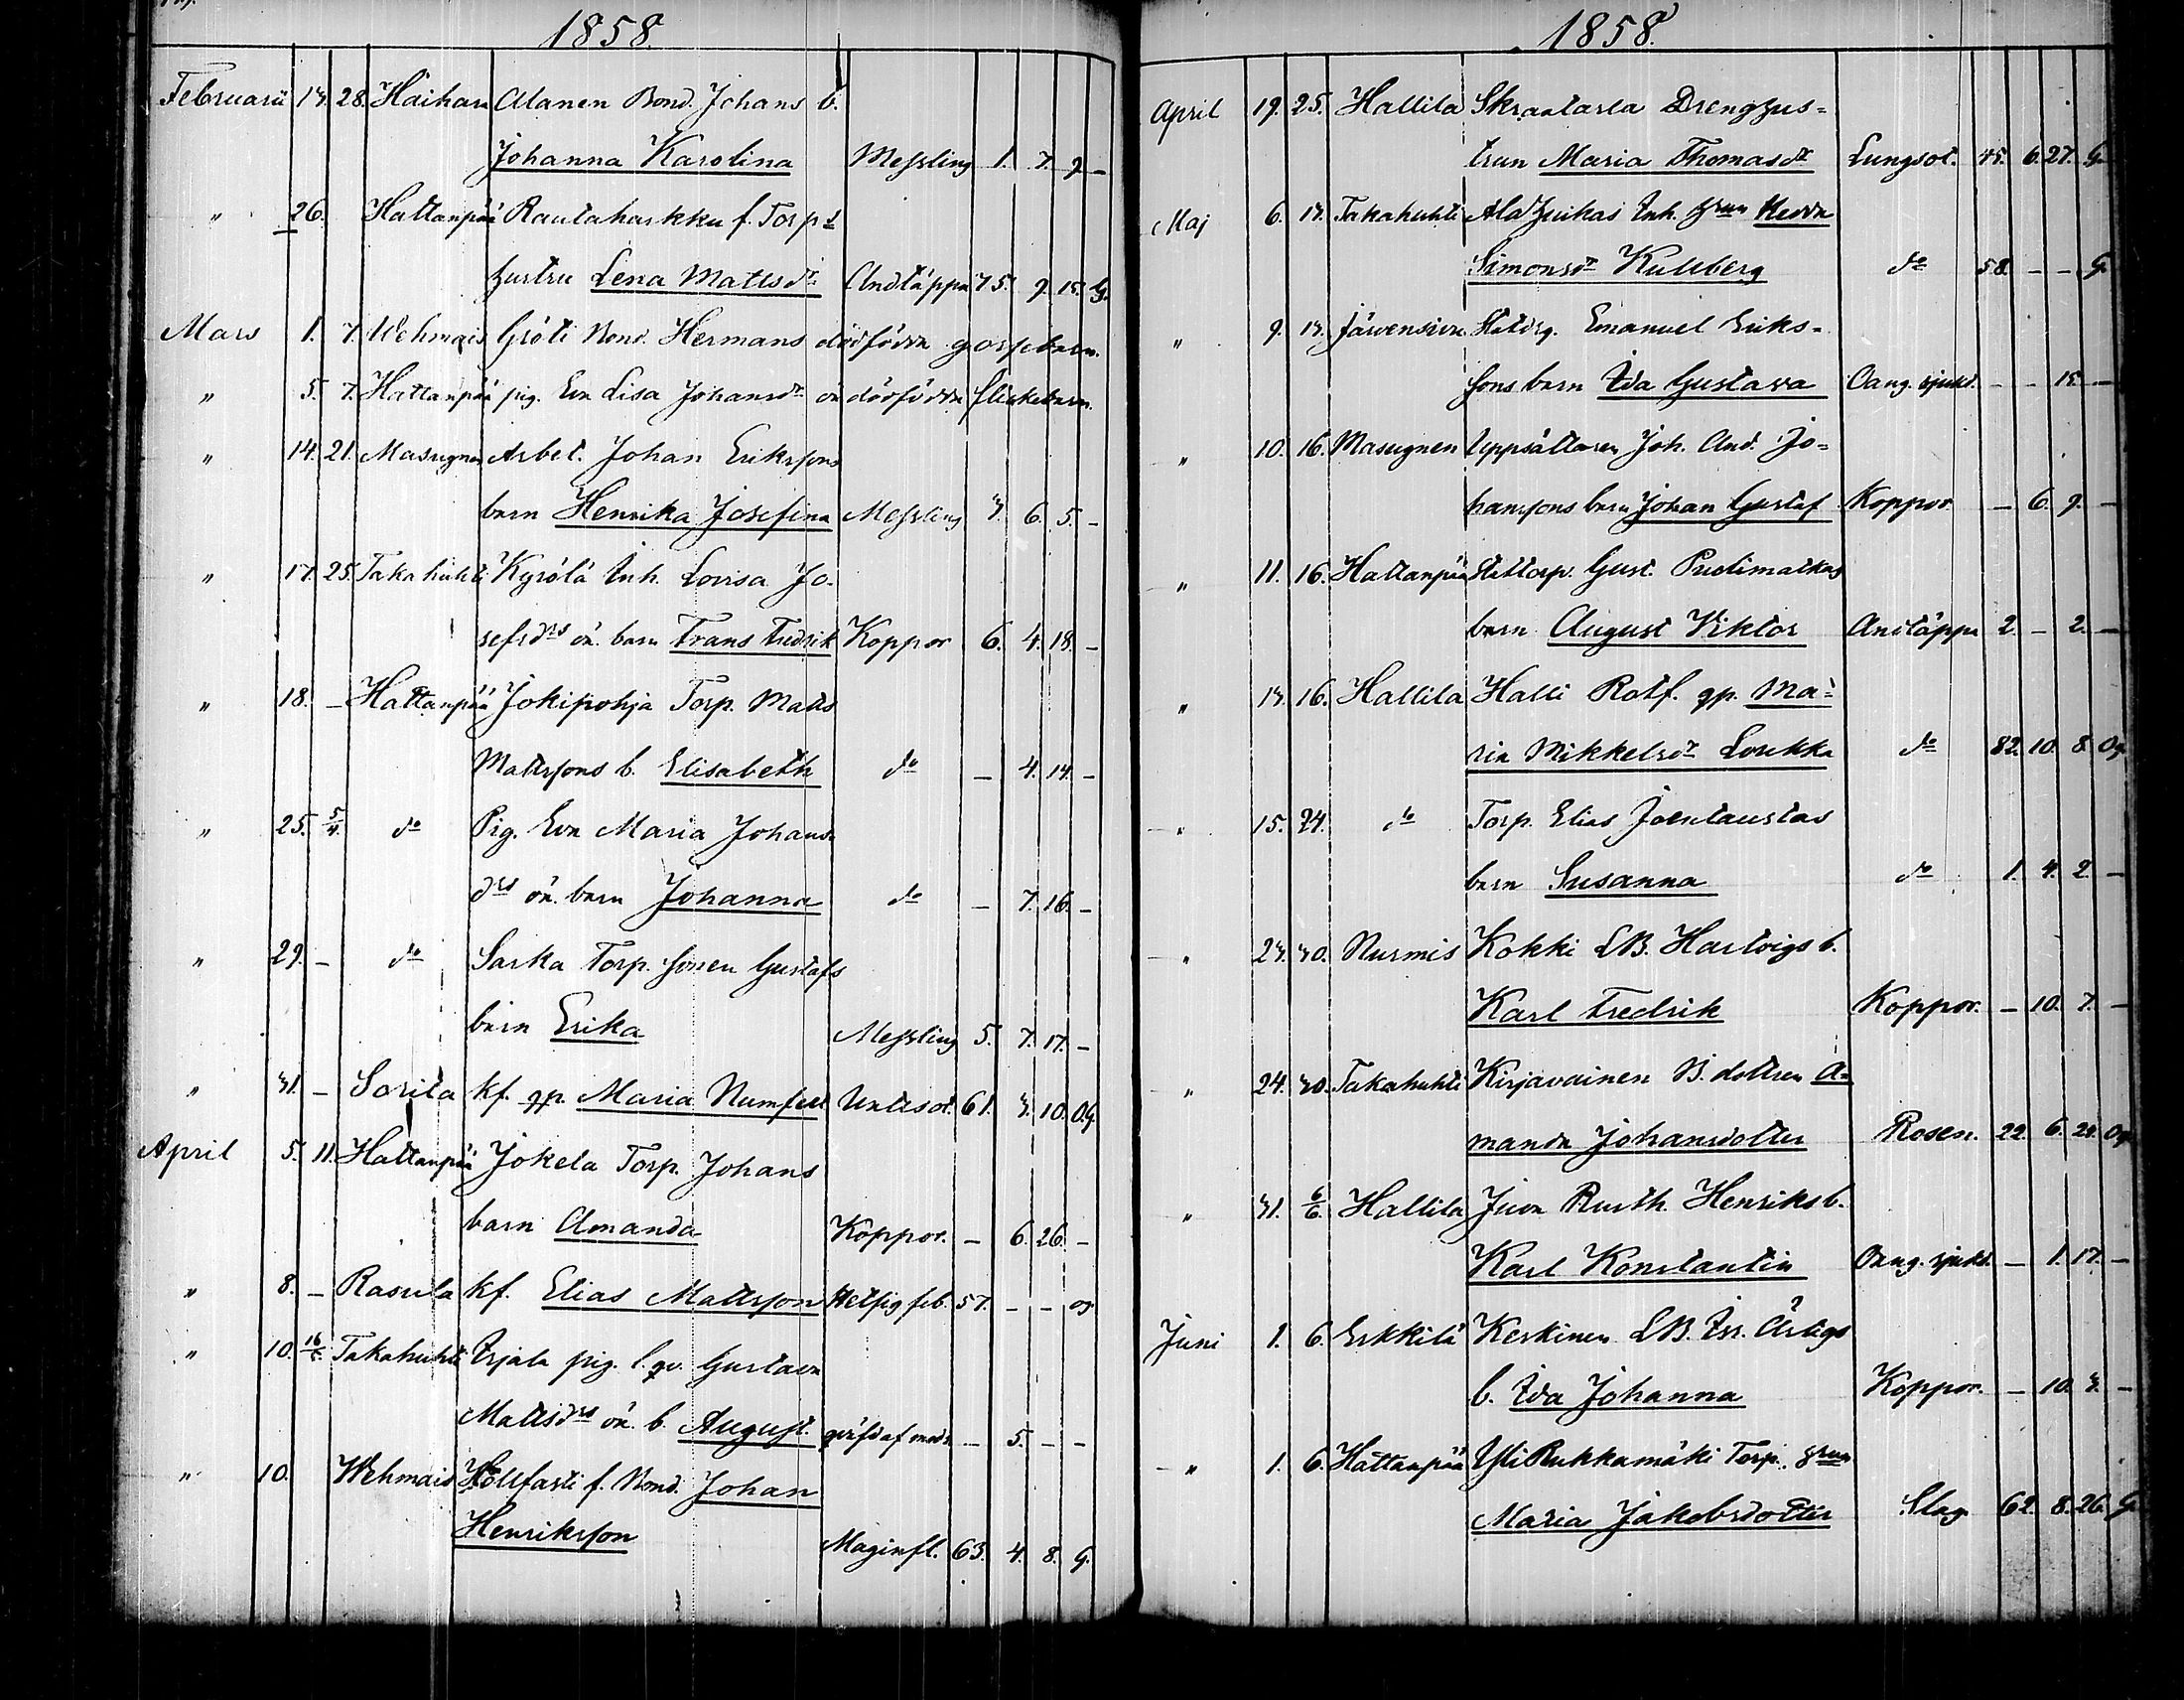 1858
Februarii 13. 28. Haihara Alanen Bond. Johans b.
Johanna Karolina Messling 1. 7. 9 -
" 26. Hattanpää Rautaharkku f. Torp.
hustru Lena Mattsdr. Andtäppa 75. 9 15. G.
Mars 1. 7. Wehmais Gröti Bond. Hermans dödfödda gossebarn.
" 5. 7. Hattanpää pig. Eva Lisa Johansdr oä dödfödda flickebarn.
" 14. 21. Masugnen Arbet. Johan Erikssons
barn Henrika Josefina Messling 3. 6. 5. -
" 17. 25. Takahuhti Kyrölä Inh. Lovisa Jo-
sefsdrs oä. barn Frans Fredrik Koppor 6. 4. 18. -
" 18. - Hattanpää Jokipohja Torp. Matts
Mattssons b. Elisabeth do - 4. 14. -
" 25. 5/4. do Pig. Eva Maria Johans
drs oä. barn Johanna do - 7. 16. -
" 29. - do Sarka Torp. sonen Gustafs
barn Erika Messling 5. 7. 17. -
" 31. - Sorila kf. gp. Maria Numfelt Uttsot. 61. 3. 10. OG.
April 5. 11. Hattanpää Jokela Torp. Johans
barn Amanda Koppor. - 6. 26. -
" 8. - Rasula kf. Elias Mattsson Hetsig feb. 57. - - og
" 10. 16/5. Takahuhti Irjala pig. l. qv. Gustava
Mattsdrs oä. b. August. qväfd af modr. - 5. - -
" 10. Wehmais Hollfasti f. Bond. Johan
Henriksson Maginfl. 63. 4. 8. G.
1858.
April 19. 25. Hallila Skraatarla Drenghus-
trun Maria Thomasdr Lungsot. 45. 6. 27. G.
Maj 6. 13. Takahuhti Ala Juikas Inh. hrun Hedda
Simonsdr Kullberg do 58. - - G.
" 9. 13. Järvensivu Statdrg. Emanuel Eriks-
sons barn Ida Gustava Oang. sjukd. - - 15. -
" 10. 16. Masugnen Uppsättaren Joh. And. Jo-
hanssons barn Johan Gustaf Koppor - 6. 9. -
" 11. 16. Hattanpää Stattorp. Gust. Pudimatkas
barn August Viktor Andtäppa 2. - 2. -
" 13. 16. Hallila Halli Rotf. gp. Ma-
ria Mikkelsdr Loukka do 82. 10. 8. Og.
" 15. 24. do Torp. Elias Joentaustas
barn Susanna do 1. 4. 2. -
" 23. 30. Nurmis Kokki LB. Hartvigs b.
Karl Fredrik Koppor. - 10. 7. -
" 24. 30. Takahuhti Kirjavainen B. dottren A-
manda Johansdotter Rosen. 22. 6. 23. Og.
" 31. 6/6. Hallila Juva Rusth. Henriks b.
Karl Konstantin Oang. sjukd. - 1. 17. -
Juni 1. 6. Erkkilä Keskinen LB. Isr. Arligs
b. Ida Johanna Koppor. - 10. 3. -
" 1. 6. Hattanpää Yli Rukkamäki Torp. hrun
Maria Jakobsdotter Slag 62. 8. 26. G.